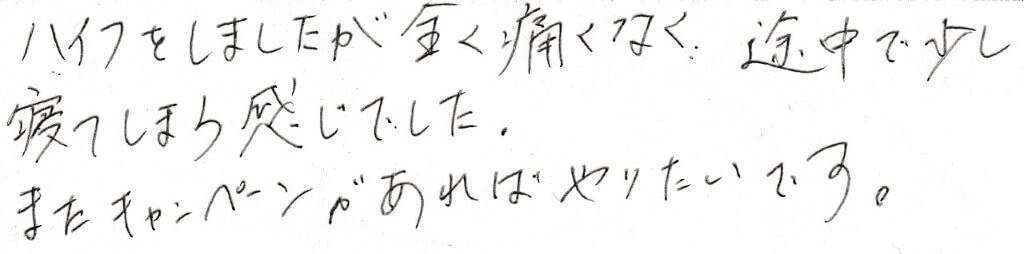 ハイフをしましたが全く痛くなく、途中で少し
寝てしまう感じでした。
またキャンペーンがあればやりたいです。